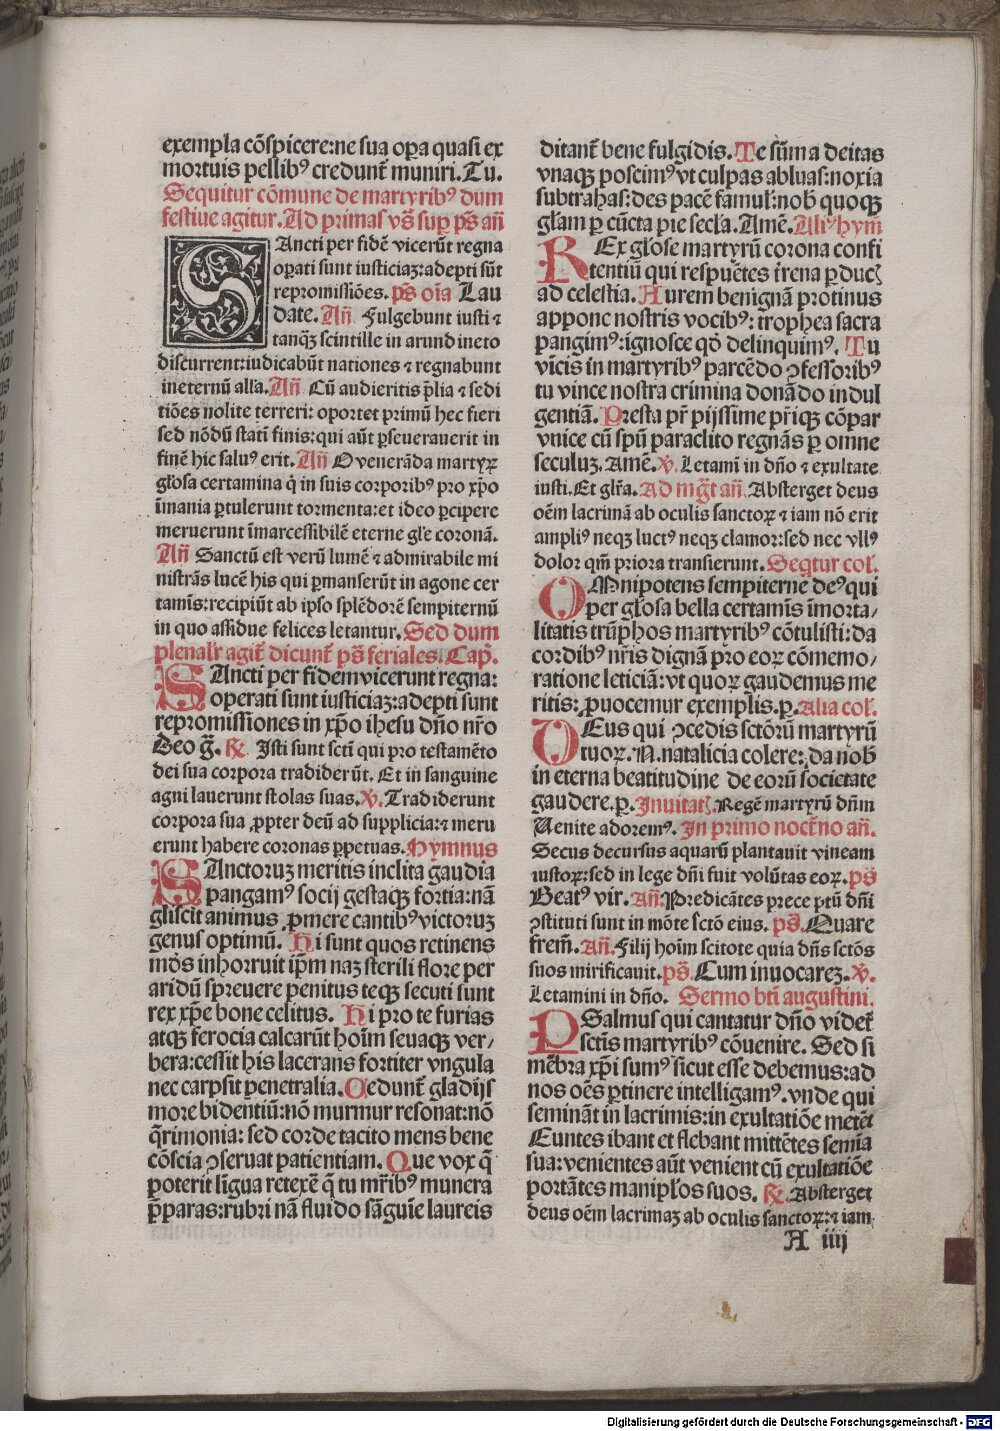 exempla cōspicere:ne sua oꝑa quasi ex
mortuis pellibꝰ credunt̄ muniri.Tu.
Sequitur cōmune de martyribꝰ dum
festiue agitur.Ad primas vs̄ suꝑ ps̄ an̄
SAncti per fidē vicerūt regna
oꝑati sunt iusticiaȝ:adepti sūt
repromissiōes.ps̄ oīa Lau
date.An̄ Fulgebunt iusti ⁊
tanqȝ scintille in arund ineto
discurrent:iudicabūt nationes ⁊ regnabunt
ineternū alľa.An̄ Cū audieritis p̄lia ⁊ sedi
tiōes nolite terreri: oportet primū hec fieri
sed nōdū statī finis:qui aūt ꝑseuerauerit in
finē hic saluꝰ erit.An̄ O venerāda martyꝝ
gľosa certamina q̄ in suis corporibꝰ pro xp̄o
īmania ꝑtulerunt tormenta:et ideo ꝑcipere
meruerunt īmarcessibilē eterne gľe coronā.
An̄ Sanctū est verū lumē ⁊ admirabile mi
nistrās lucē his qui ꝑmanserūt in agone cer
tamīs:recipiūt ab ipso splēdorē sempiternū
in quo assidue felices letantur.Sed dum
plenaľr agit̄ dicunt̄ ps̄ feriales.Cap̄.
SAncti per fidem vicerunt regna:
operati sunt iusticiaȝ:adepti sunt
repromissiones in xp̄o ihesu dn̄o nr̄o
Deo ḡ. ℟ Isti sunt sct̄i qui pro testamēto
dei sua corpora tradider ūt. Et in sanguine
agni lauerunt stolas suas.℣.Tradiderunt
corpora sua ꝓpter deū ad supplicia:⁊ meru
erunt habere coronas ꝑpetuas.Hymnus
SAnctoruȝ meritis inclita gaudia
pangamꝰ socij gestaqȝ fortia:nā
gliscit animus ꝓmere cantibꝰ victoruȝ
genus optimū. Hi sunt quos retinens
mūds inhorruit ip̄m naȝ sterili flore per
aridū spreuere penitus teqȝ secuti sunt
rex xp̄e bone celitus. Hi pro te furias
atqȝ ferocia calcarūt hoīm seuaqȝ ver/
bera:cessit his lacerans fortiter vngula
nec carpsit penetralia.Cedunt̄ gladijs
more bidentiū:nō murmur resonat:nō
q̄rimonia: sed corde tacito mens bene
cōscia ꝯseruat patientiam. Que vox q̄
poterit līgua retexē q̄ tu mr̄ibꝰ munera
p̄paras:rubri nā fluido sāguīe laureis
ditant̄ bene fulgidis. Te sūma deitas
vnaqȝ poscimꝰ vt culpas abluas:noxia
subtrahas:des pacē famuľ:nob̄ quoqȝ
gľam ꝑ cūcta pie secľa.Amē.Aľr hym̄
REx gľose martyrū corona confi
tentiū qui respuētes t̄rena ꝑducꝭ
ad celestia. Aurem benignā protinus
appone nostris vocibꝰ: trophea sacra
pangimꝰ:ignosce qd̄ delinquimꝰ. Tu
vīcis in martyribꝰ parcēdo ꝯfessoribꝰ
tu vince nostra crimina donādo indul
gentiā. Presta pr̄ pijssime pr̄iqȝ cōpar
vnice cū spū paraclito regnās ꝑ omne
seculuȝ. Amē.℣. Letamī in dn̄o ⁊ exultate
iusti.Et glr̄a. Ad mḡt an̄. Absterget deus
oēm lacrimā ab oculis sanctoꝝ ⁊ iam nō erit
ampliꝰ neqȝ luctꝰ neqȝ clamor:sed nec vllꝰ
dolor qm̄ priora transierunt. Seq̄tur coľ.
OMnipotens sempiterne deꝰ qui
per gľosa bella certamīs īmorta/
litatis trūphos martyribꝰ cōtulisti:da
cordibꝰ nr̄is dignā pro eoꝝ cōmemo/
ratione leticiā:vt quoꝝ gaudemus me
ritis: ꝓuocemur exemplis.p. Alia coľ.
DEus qui ꝯcedis sctōrū martyrū
tuoꝝ.N.natalicia colere: da nob̄
in eterna beatitudine de eorū societate
gaudere.p. Inuitatꝭ. Regē martyrū dn̄m
Uenite adoremꝰ. In primo noct̄no an̄.
Secus decursus aquarū plantauit vineam
iustoꝝ:sed in lege dn̄i fuit volūtas eoꝝ. ps̄
Beatꝰ vir. An̄.Predicātes prece ptū dn̄i
ꝯstituti sunt in mōte sctō eius. ps̄.Quare
frem̄. An̄.Filij hoīm scitote quia dn̄s sctōs
suos mirificauit.ps̄.Cum inuocareȝ.℣.
Letamini in dn̄o. Sermo bt̄i augustini.
PSalmus qui cantatur dn̄o videt̄
sctīs martyribꝰ cōuenire. Sed si
mēbra xp̄i sumꝰ sicut esse debemus:ad
nos oēs ꝑtinere intelligamꝰ.vnde qui
semināt in lacrimis:in exultatiōe metēt
Euntes ibant et flebant mittētes semīa
sua:venientes aūt venient cū exultatiōe
portātes manipľos suos. ℟. Absterget
deus oēm lacrimaȝ ab oculis sanctoꝝ:⁊ iam
A iiij
Digitalisierung gefördert durch die Deutsche Forschungsgemeinschaft - DFG